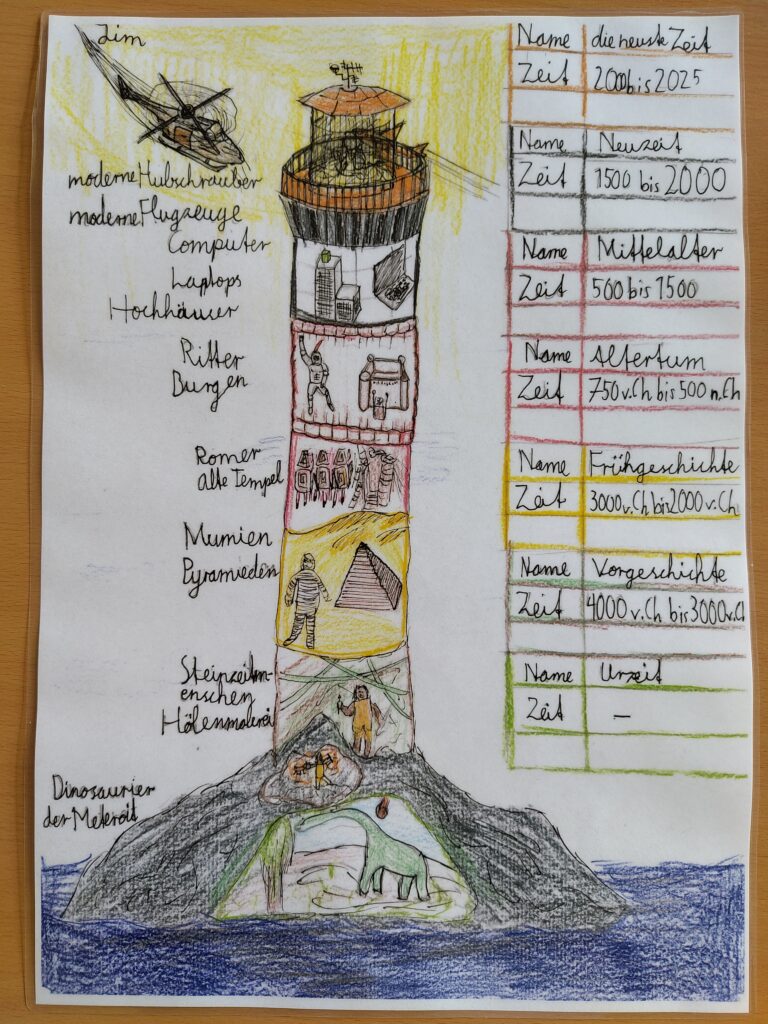 Jim
moderne Hubschrauber
moderne Flugzeuge
Computer
Laptops
Hochhäuser
Ritter
Burgen
Römer
alte Tempel
Mumien
Pyramieden
Steinzeitm-
enschen
Hölenmalerei
Dinosaurier
der Meteroit
Name die neuste Zeit
Zeit 2000 bis 2025
Name Neuzeit
Zeit 1500 bis 2000
Name Mittelalter
Zeit 500 bis 1500
Name Altertum
Zeit 750 v.Ch bis 500 n.Ch
Name Frühgeschichte
Zeit 3000 v.Ch bis 2000 v.Ch
Name Vorgeschichte
Zeit 4000 v.Ch bis 3000 v.Ch
Name Urzeit
Zeit –